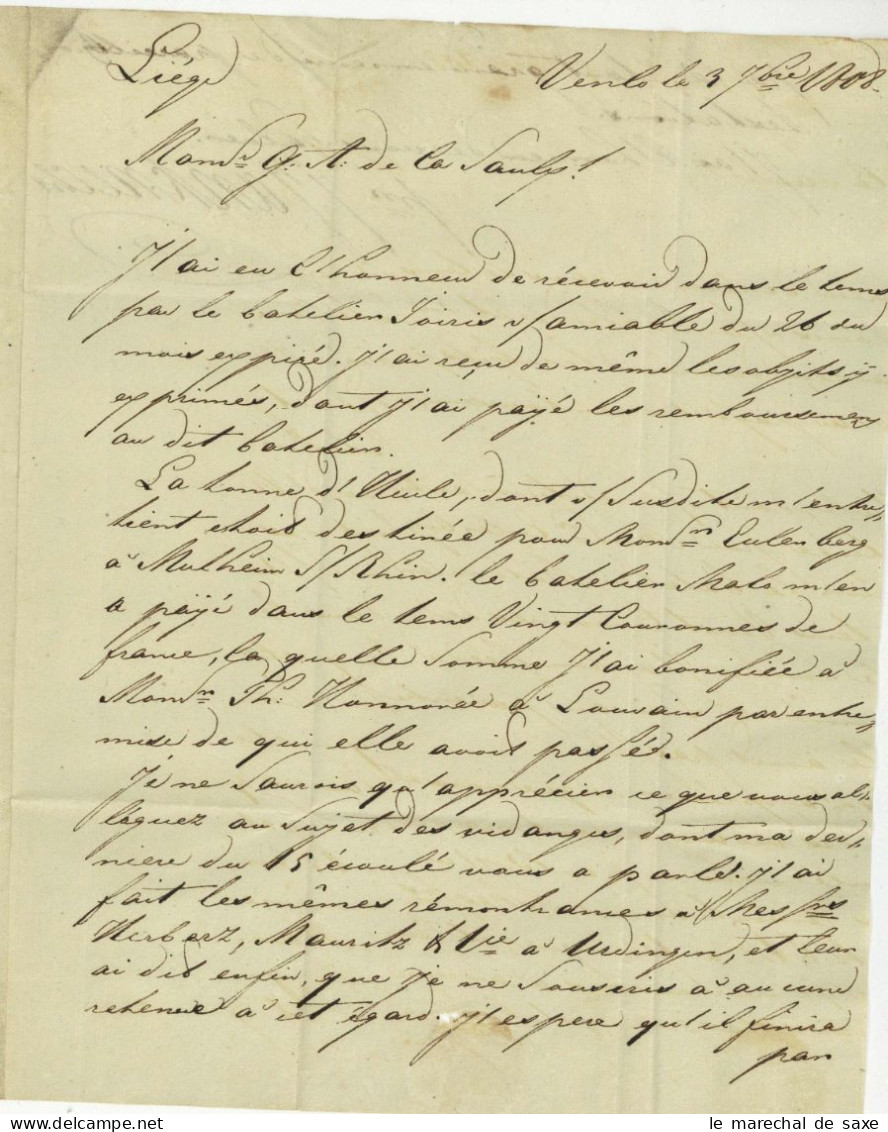 Liége
Venlo le 3 7bre 1808.
Monsr. G: A: de la Saulx!
J'ai eu l'honneur de récevoir dans le tems
par le batelier Joiris v/ amiable du 26 du
mois expiré. J'ai reçu de même les objets y
exprimés, dont j'ai païé les remboursemens
au dit batelier.
La tonne d'Huile, dont v/ Susdite m'entre„
tient etoit destinée pour Monsr. Eulenberg
à Mulheim S/Rhin. le batelier Malo m'en
a païé dans le tems Vingt Couronnes de
france, la quelle Somme J'ai bonifiée à
Monsr. Th: Honnorée à Louvain par entre„
mise de qui elle avoit passée.
Je ne Saurois qu'apprécier ce que vous al„
léguez au Sujet des vidanges, dont ma der„
niere du 15 écoulé vous a parlé. J'ai
fait les mêmes rémontrances à Messrs
Herbertz, Mauritz & Cie à Urdingen, et leur
ai dit enfin, que Je ne Souscris à aucune
retenue à cet égard. J'espere qu'il finira
par
le marechal de saxe